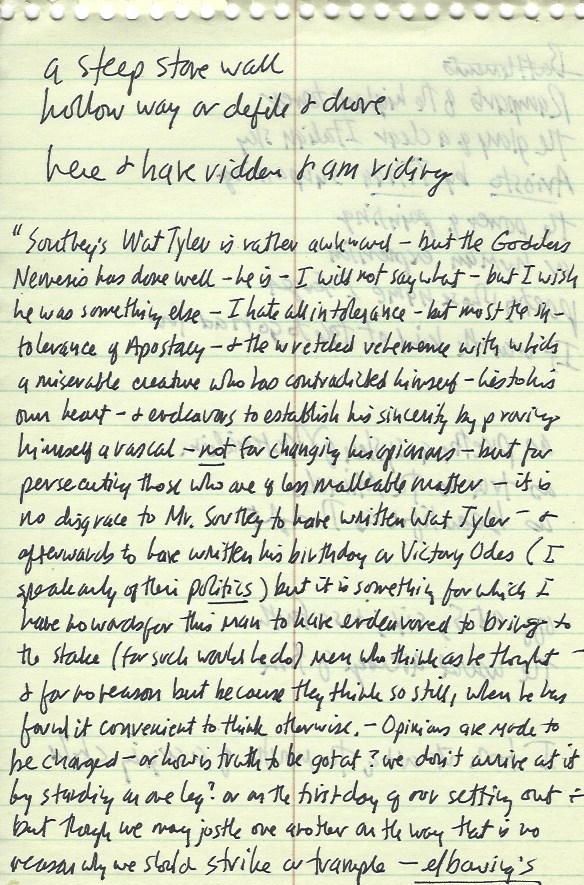 a steep stone wall
hollow way or defile & drove
here & have ridden & am riding
"Southey's Wat Tyler is rather awkward – but the Goddess
Nemesis has done well – he is – I will not say what – but I wish
he was something else – I hate all intolerance – but most the in-
tolerance of Apostacy – & the wretched vehemence with which
a miserable creature who has contradicted himself – lies to his
own heart – & endeavors to establish his sincerity by proving
himself a rascal – not for changing his opinions – but for
persecuting those who are of less malleable matter – it is
no disgrace to Mr. Southey to have written Wat Tyler – &
afterwards to have written his birthday or Victory Odes (I
speak only of their politics) but it is something for which I
have no words for this man to have endeavored to bring to
the stake (for such would he do) men who think as he thought –
& for no reason but because they think so still, when he has
found it convenient to think otherwise. – Opinions are made to
be changed – or how is truth to be got at? we don't arrive at it
by standing on one leg? or on the first day of our setting out –
but though we may jostle one another on the way that is no
reason why we should strike or trample – elbowing's